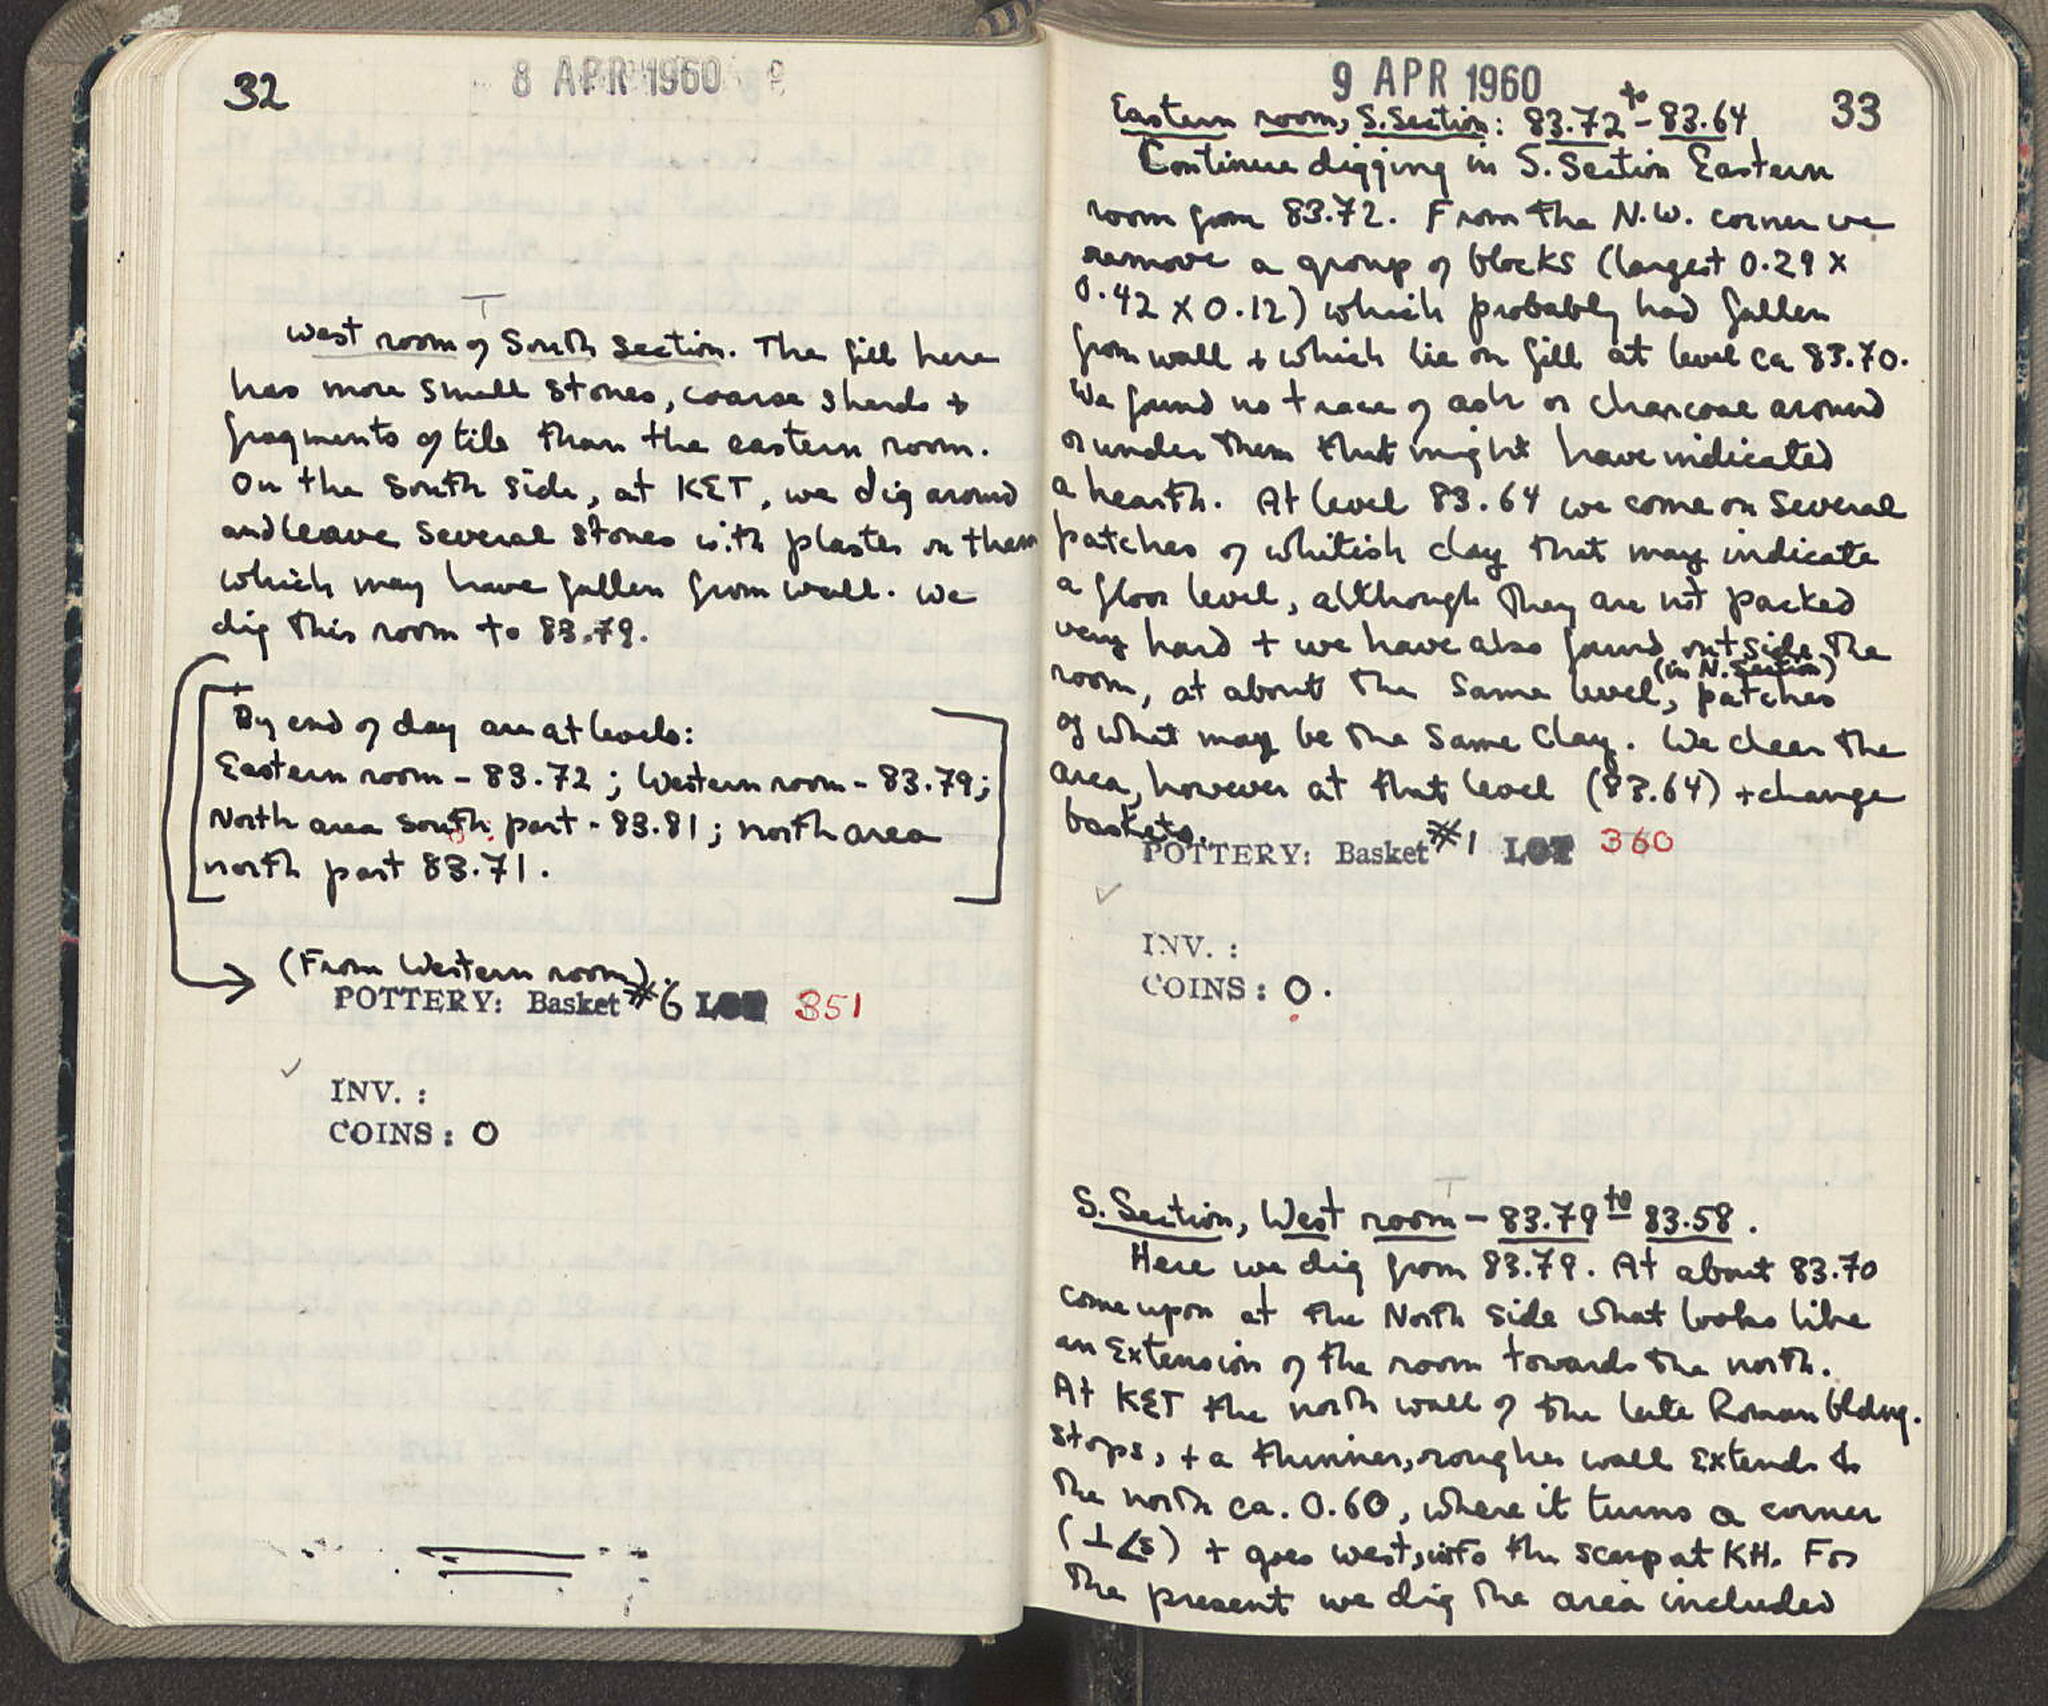 32
8 APR 1960
West room of South Section. The fill here
has more small stones, coarse sherds +
fragments of tile than the eastern room.
On the South side, at KET, we dig around
and leave several stones with plaster on them
which may have fallen from wall. We
dig this room to 83.79.
By end of day are at levels:
Eastern room - 83.72 ; Western room - 83.79;
North area south part - 83.81 ; north area
north part 83.71.
(From Western room).
POTTERY: Basket #6 LOT 351
INV. :
COINS: 0
9 APR 1960
33
Eastern room, S. Section: 83.72 to - 83.64
Continue digging in S. Section Eastern
room from 83.72. From the N.W. corner we
remove a group of blocks (largest 0.29 x
0.42 x 0.12) which probably had fallen
from wall + which lie on fill at level ca 83.70.
We found no trace of ash or charcoal around
or under them that might have indicated
a hearth. At level 83.64 we come on several
patches of whitish clay that may indicate
a floor level, although they are not packed
very hard + we have also found outside the
room, at about the same level, (in N. Section) patches
of what may be the same clay. We clean the
area, however at that level (83.64) + change
baskets.
POTTERY: Basket #1 LOT 360
INV. :
COINS: 0.
S. Section, West room - 83.79 to 83.58.
Here we dig from 83.79. At about 83.70
come upon at the North side what looks like
an extension of the room towards the north.
At KET the north wall of the late Roman bldng.
stops, + a thinner, rougher wall extends to
the north ca. 0.60, where it turns a corner
(⊥∠s) + goes west, into the scarp at KH. For
the present we dig the area included